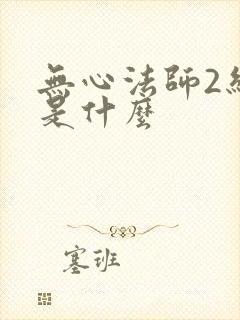 無心法師2
是什麼
塞班